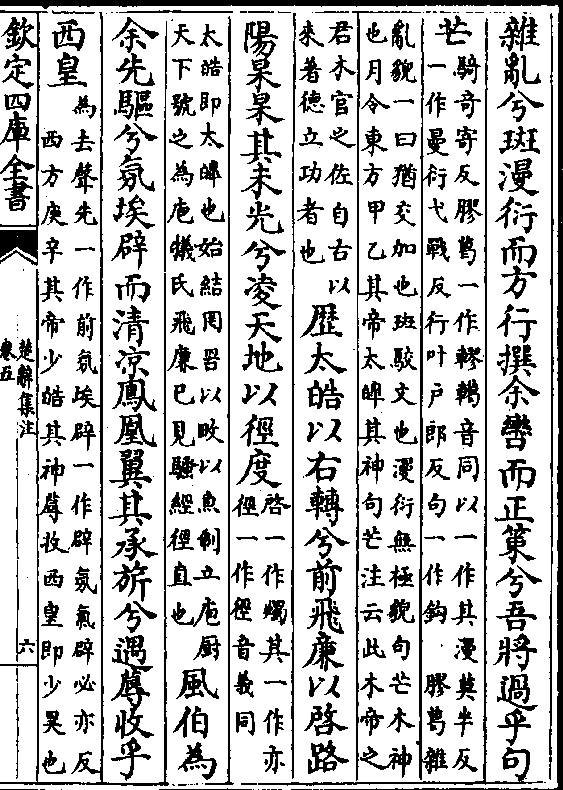 雜亂兮斑漫衍而方行撰余轡而正策兮吾將過乎句
芒
騎奇寄反膠葛一作轇轕音同以一作其漫莫半反
一作曼衍弋戰反行叶戶郎反句一作鉤　膠葛雜
亂貌一曰猶交加也班駁文也漫衍無極貌句芒木神
也月令東方甲乙其帝太皞其神句芒注云此木帝之
君木官之佐自古以
來著德立功者也
歷太皓以右轉兮前飛廉以啓路
陽杲杲其未光兮凌天地以徑度
啓一作燭其一作亦
徑一作徑音義同
太皓即太皞也始結罔罟以畋以魚制立庖厨
天下號之為庖犧氏飛廉已見騷經徑直也
風伯為
余先驅兮氛埃辟而清涼鳳凰翼其承旂兮遇蓐收乎
西皇
為去聲先一作前氛埃辟一作辟氛氣辟必亦反
西方庚辛其帝少皓其神蓐收西皇即少昊也
欽定四庫全書
楚辭集注
卷五
六